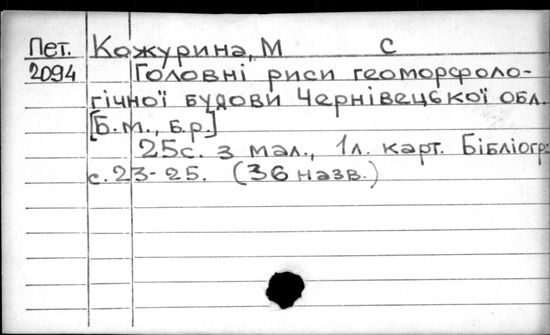 Пет. Кожурина, М С
2094 Головні риси геоморфоло-
гічної будови Чернівецької обл.
[Б.м., б.р.]
25с. з мал., 1л. карт. Бібліогр:
с.23-25. (36 назв.)